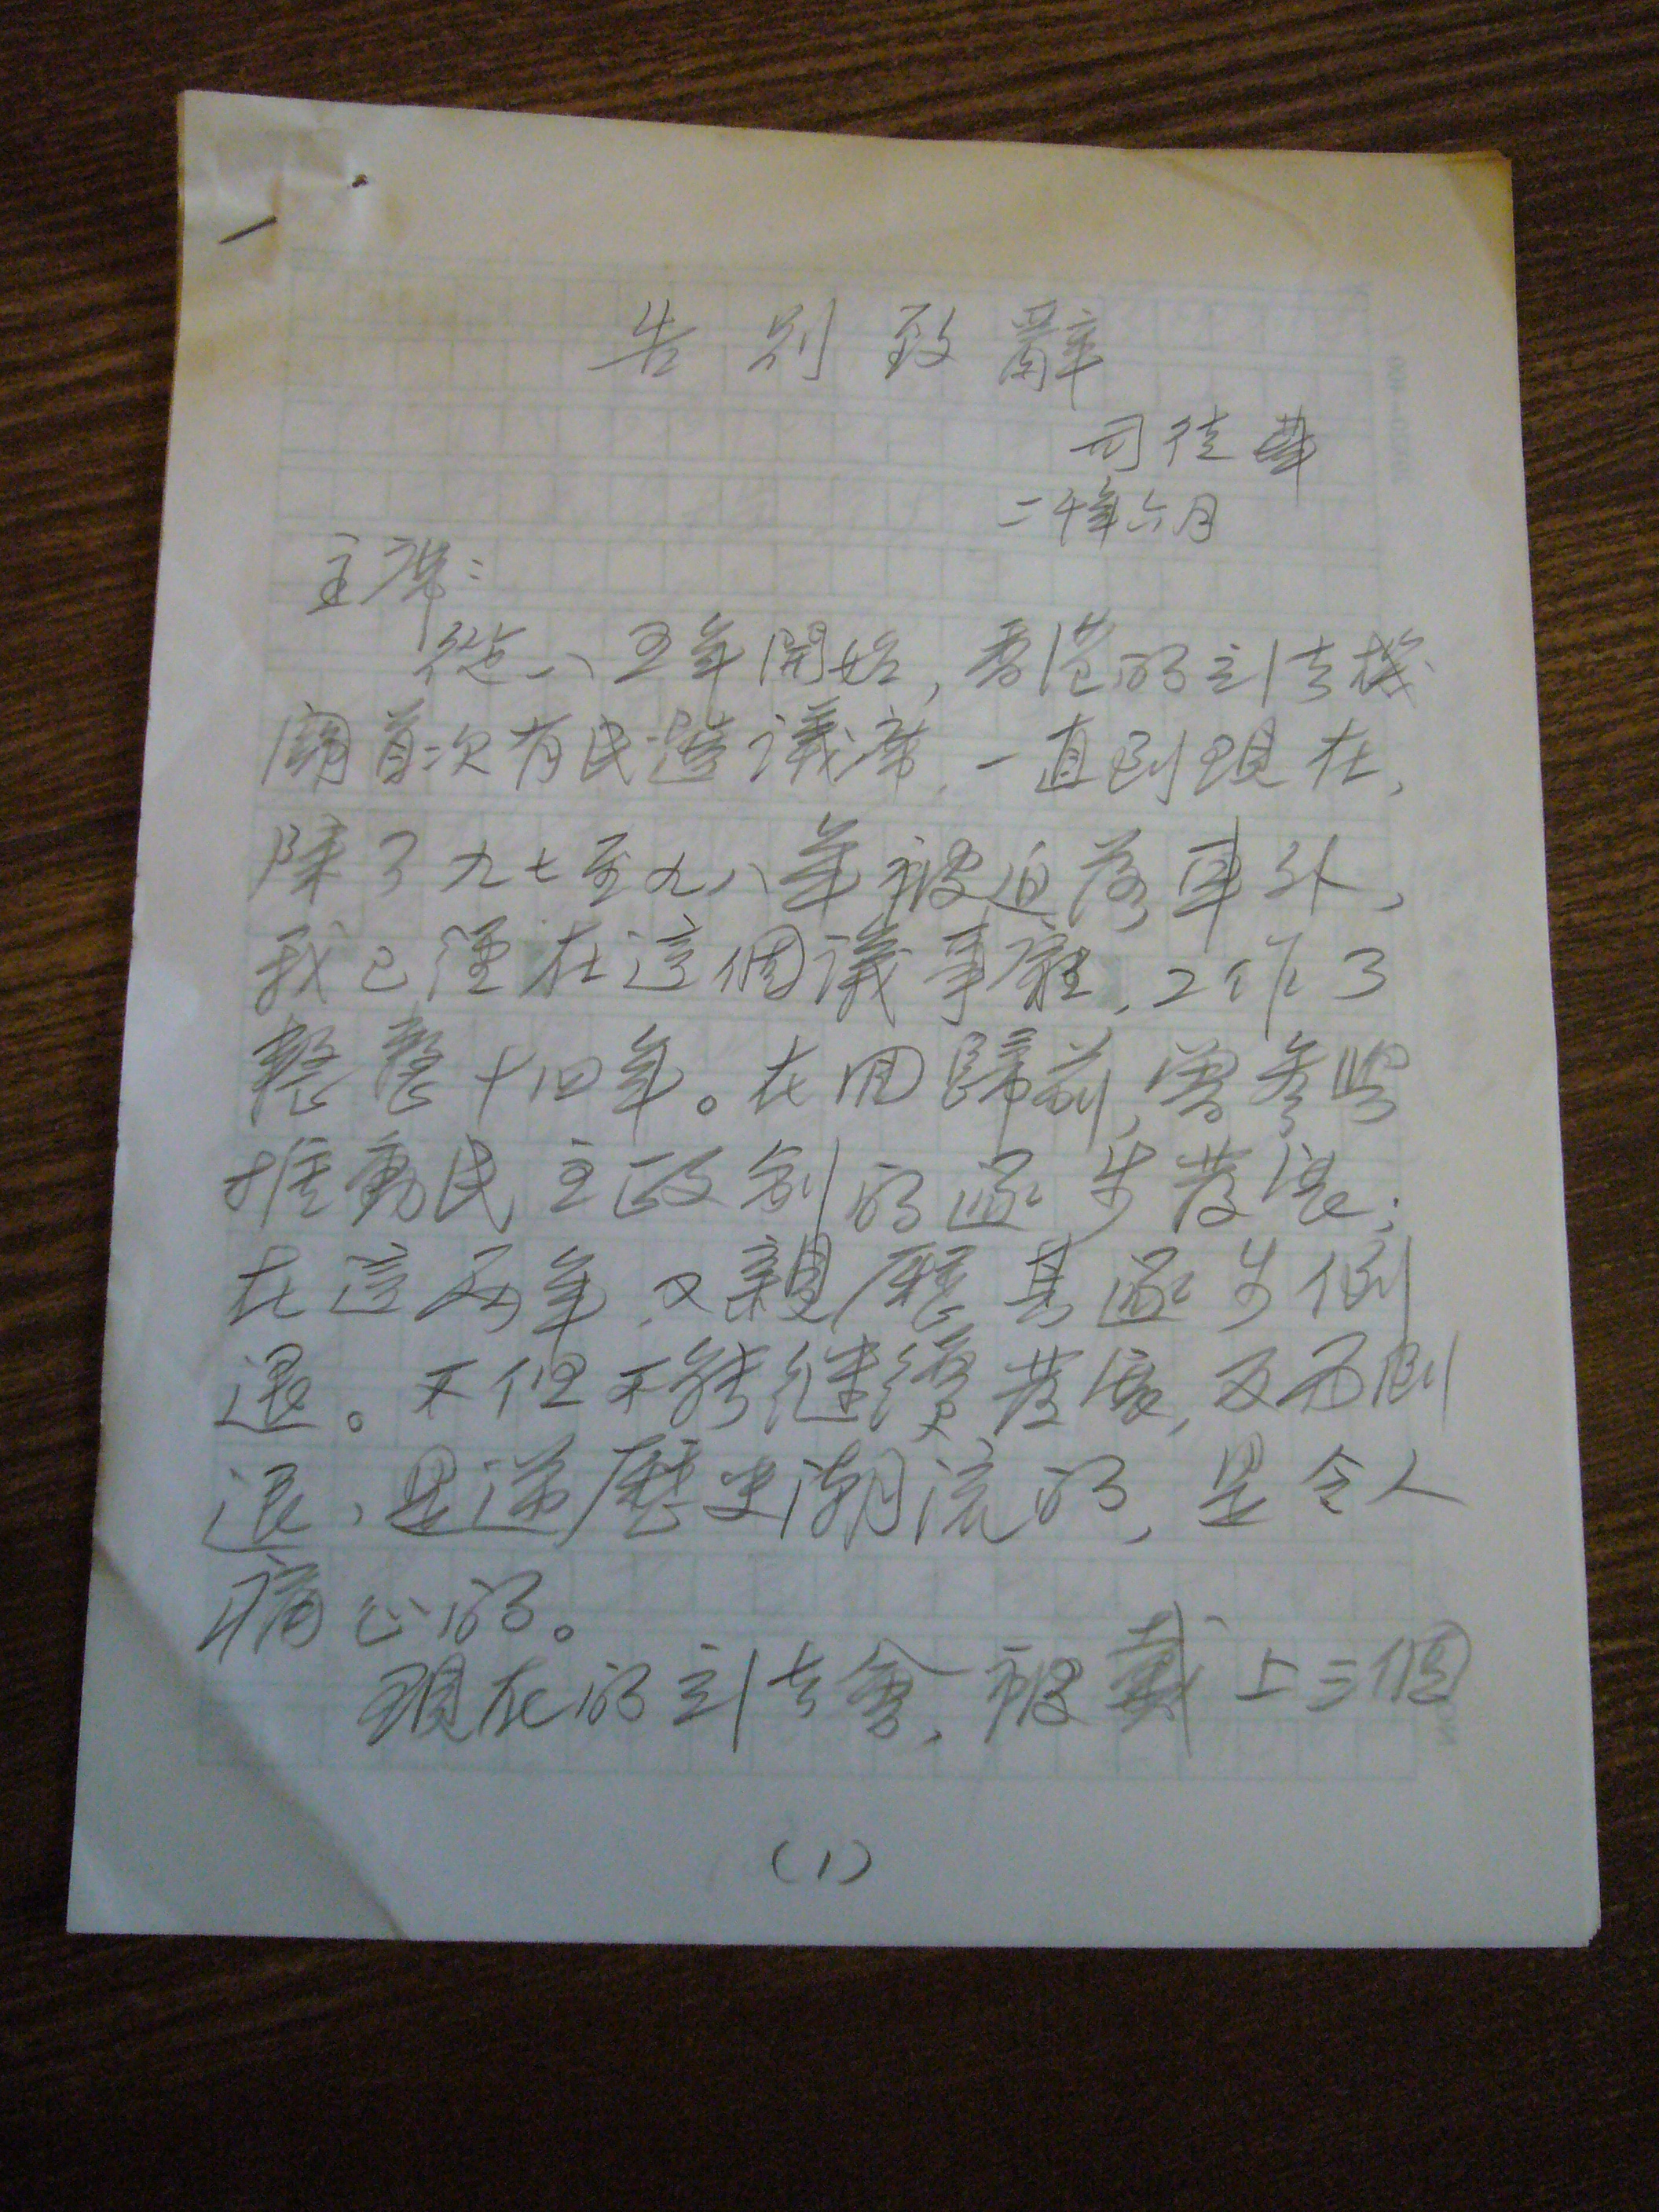 告別致辭
司徒華
二千年六月
主席：
從八五年開始，香港的立法機
關首次有民選議席，一直到現在，
除了九七至九八年被迫落車外，
我已經在這個議事廳，工作了
整整十四年。在回歸前，曾參與
推動民主政制的逐步發展；
在這兩年，又親歷其逐步倒
退。不但不能继續發展，反而倒
退，是逆歷史潮流的，是令人
痛心的。
現在的立法會，被戴上三個
(1)